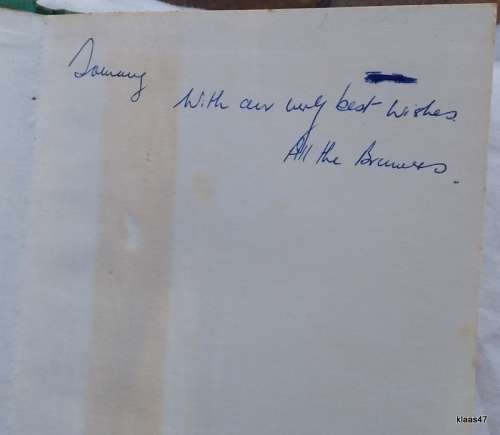 With our very best wishes.
All the
klaas47